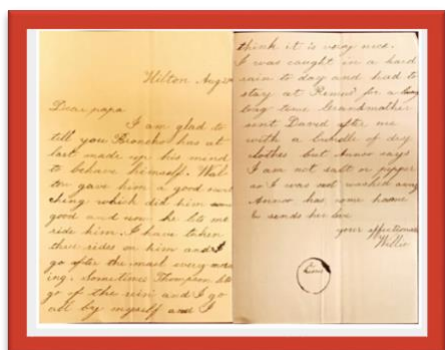 Hilton Aug
Dear papa
I am glad to
tell you Broncho has at
last made up his mind
to behave himself. Wal
ton gave him a good
ching which did him some
good and now he lets me
ride him. I have taken
three rides on him and I
go after the mail every morn
ing. Sometimes Thompson lets
go of the rein and I go
all by myself and I
think it is very nice.
I was caught in a hard
rain to day and had to
stay at for a long
long time Grandmother
sent David after me
with a bundle of dry
clothes but says
I am not salt or pepper
so I was not washed away
has come home
he sends her love
your affectionate
Willie